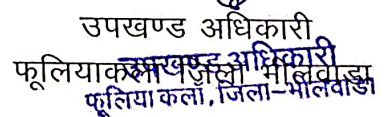 उपखण्ड अधिकारी
फूलियाकलां जिला भीलवाड़ा
उपखण्ड अधिकारी
फूलिया कलां, जिला-भीलवाडा